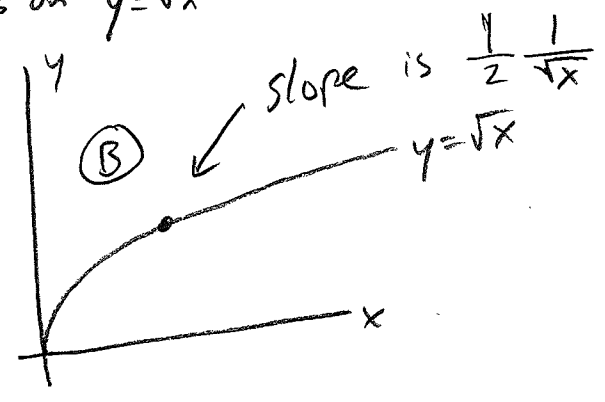 on y=√x
y
slope is 1/2 1/√x
B
y=√x
x